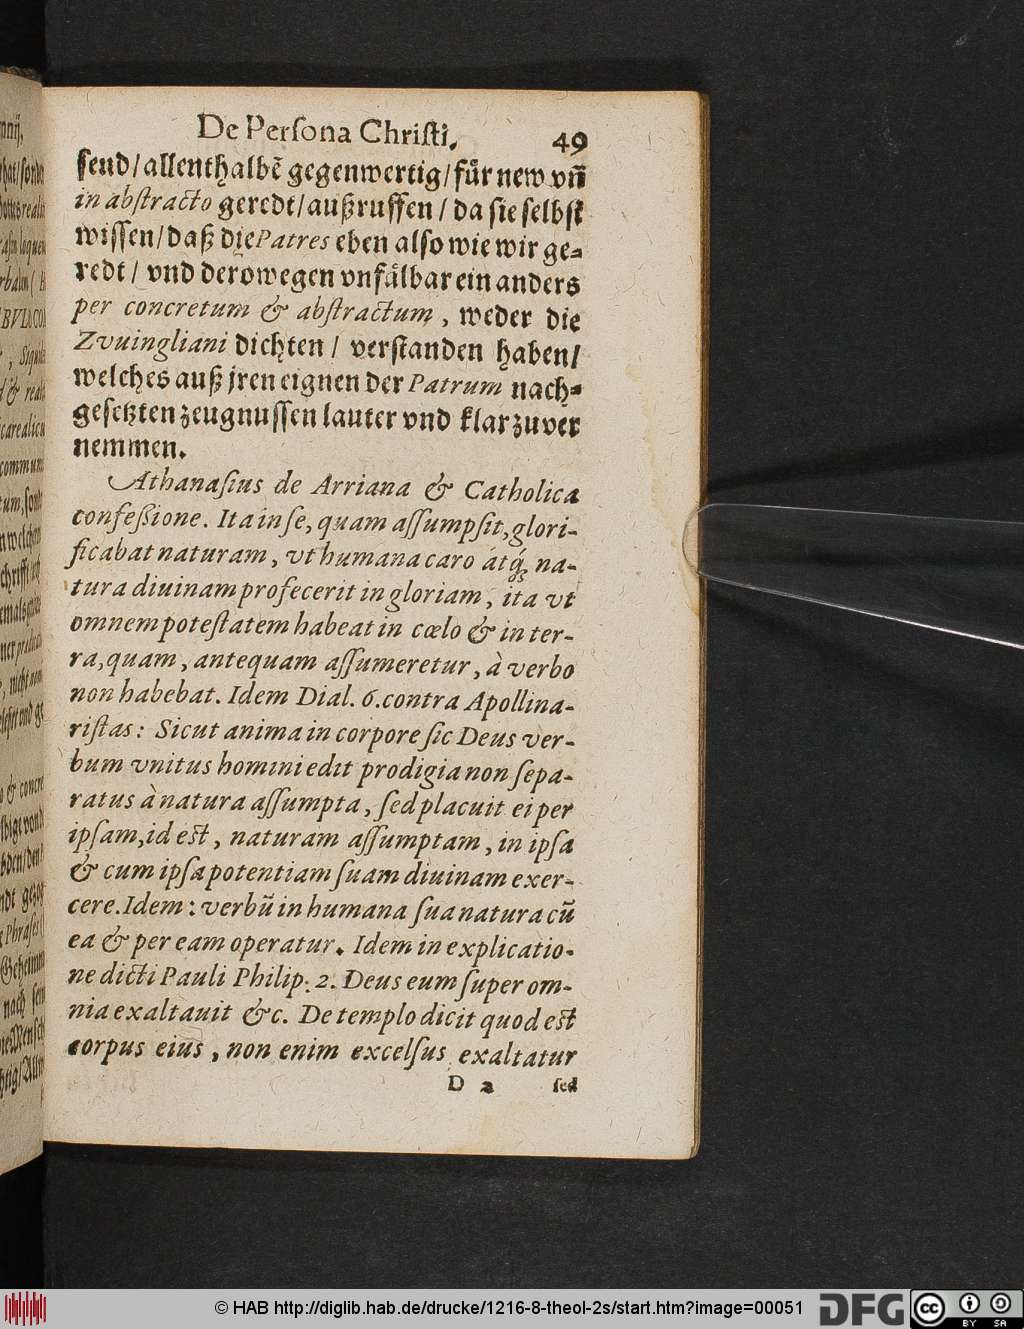 De Perſona Chriſti. 49
ſend/allenthalbē gegenwertig/fuͤr new vn̄
in abſtracto geredt/außruffen/ da ſie ſelbſt
wiſſen/daß die Patres eben alſo wie wir ge⸗
redt/ vnd derowegen vnfaͤlbar ein anders
per concretum & abſtractum, weder die
Zvuingliani dichten/ verſtanden haben/
welches auß jren eignen der Patrum nach⸗
geſetzten zeugnuſſen lauter vnd klar zuver
nemmen.
Athanaſius de Arriana & Catholica
confeßione. Ita in ſe, quam aſſumpſit, glori-
ficabat naturam, vt humana caro atq́ꝫ na-
tura diuinam profecerit in gloriam, ita vt
omnem poteſtatem habeat in cœlo & in ter-
ra, quam, antequam aſſumeretur, à verbo
non habebat. Idem Dial. 6. contra Apollina-
riſtas: Sicut anima in corpore ſic Deus ver-
bum vnitus homini edit prodigia non ſepa-
ratus à natura aſſumpta, ſed placuit ei per
ipſam, id eſt, naturam aſſumptam, in ipſa
& cum ipſa potentiam ſuam diuinam exer-
cere. Idem: verbū in humana ſua natura cū
ea & per eam operatur. Idem in explicatio-
ne dicti Pauli Philip. 2. Deus eum ſuper om-
nia exaltauit &c. De templo dicit quod eſt
corpus eius, non enim excelſus exaltatur
D 2 ſed
© HAB http://diglib.hab.de/drucke/1216-8-theol-2s/start.htm?image=00051 DFG cc BY SA